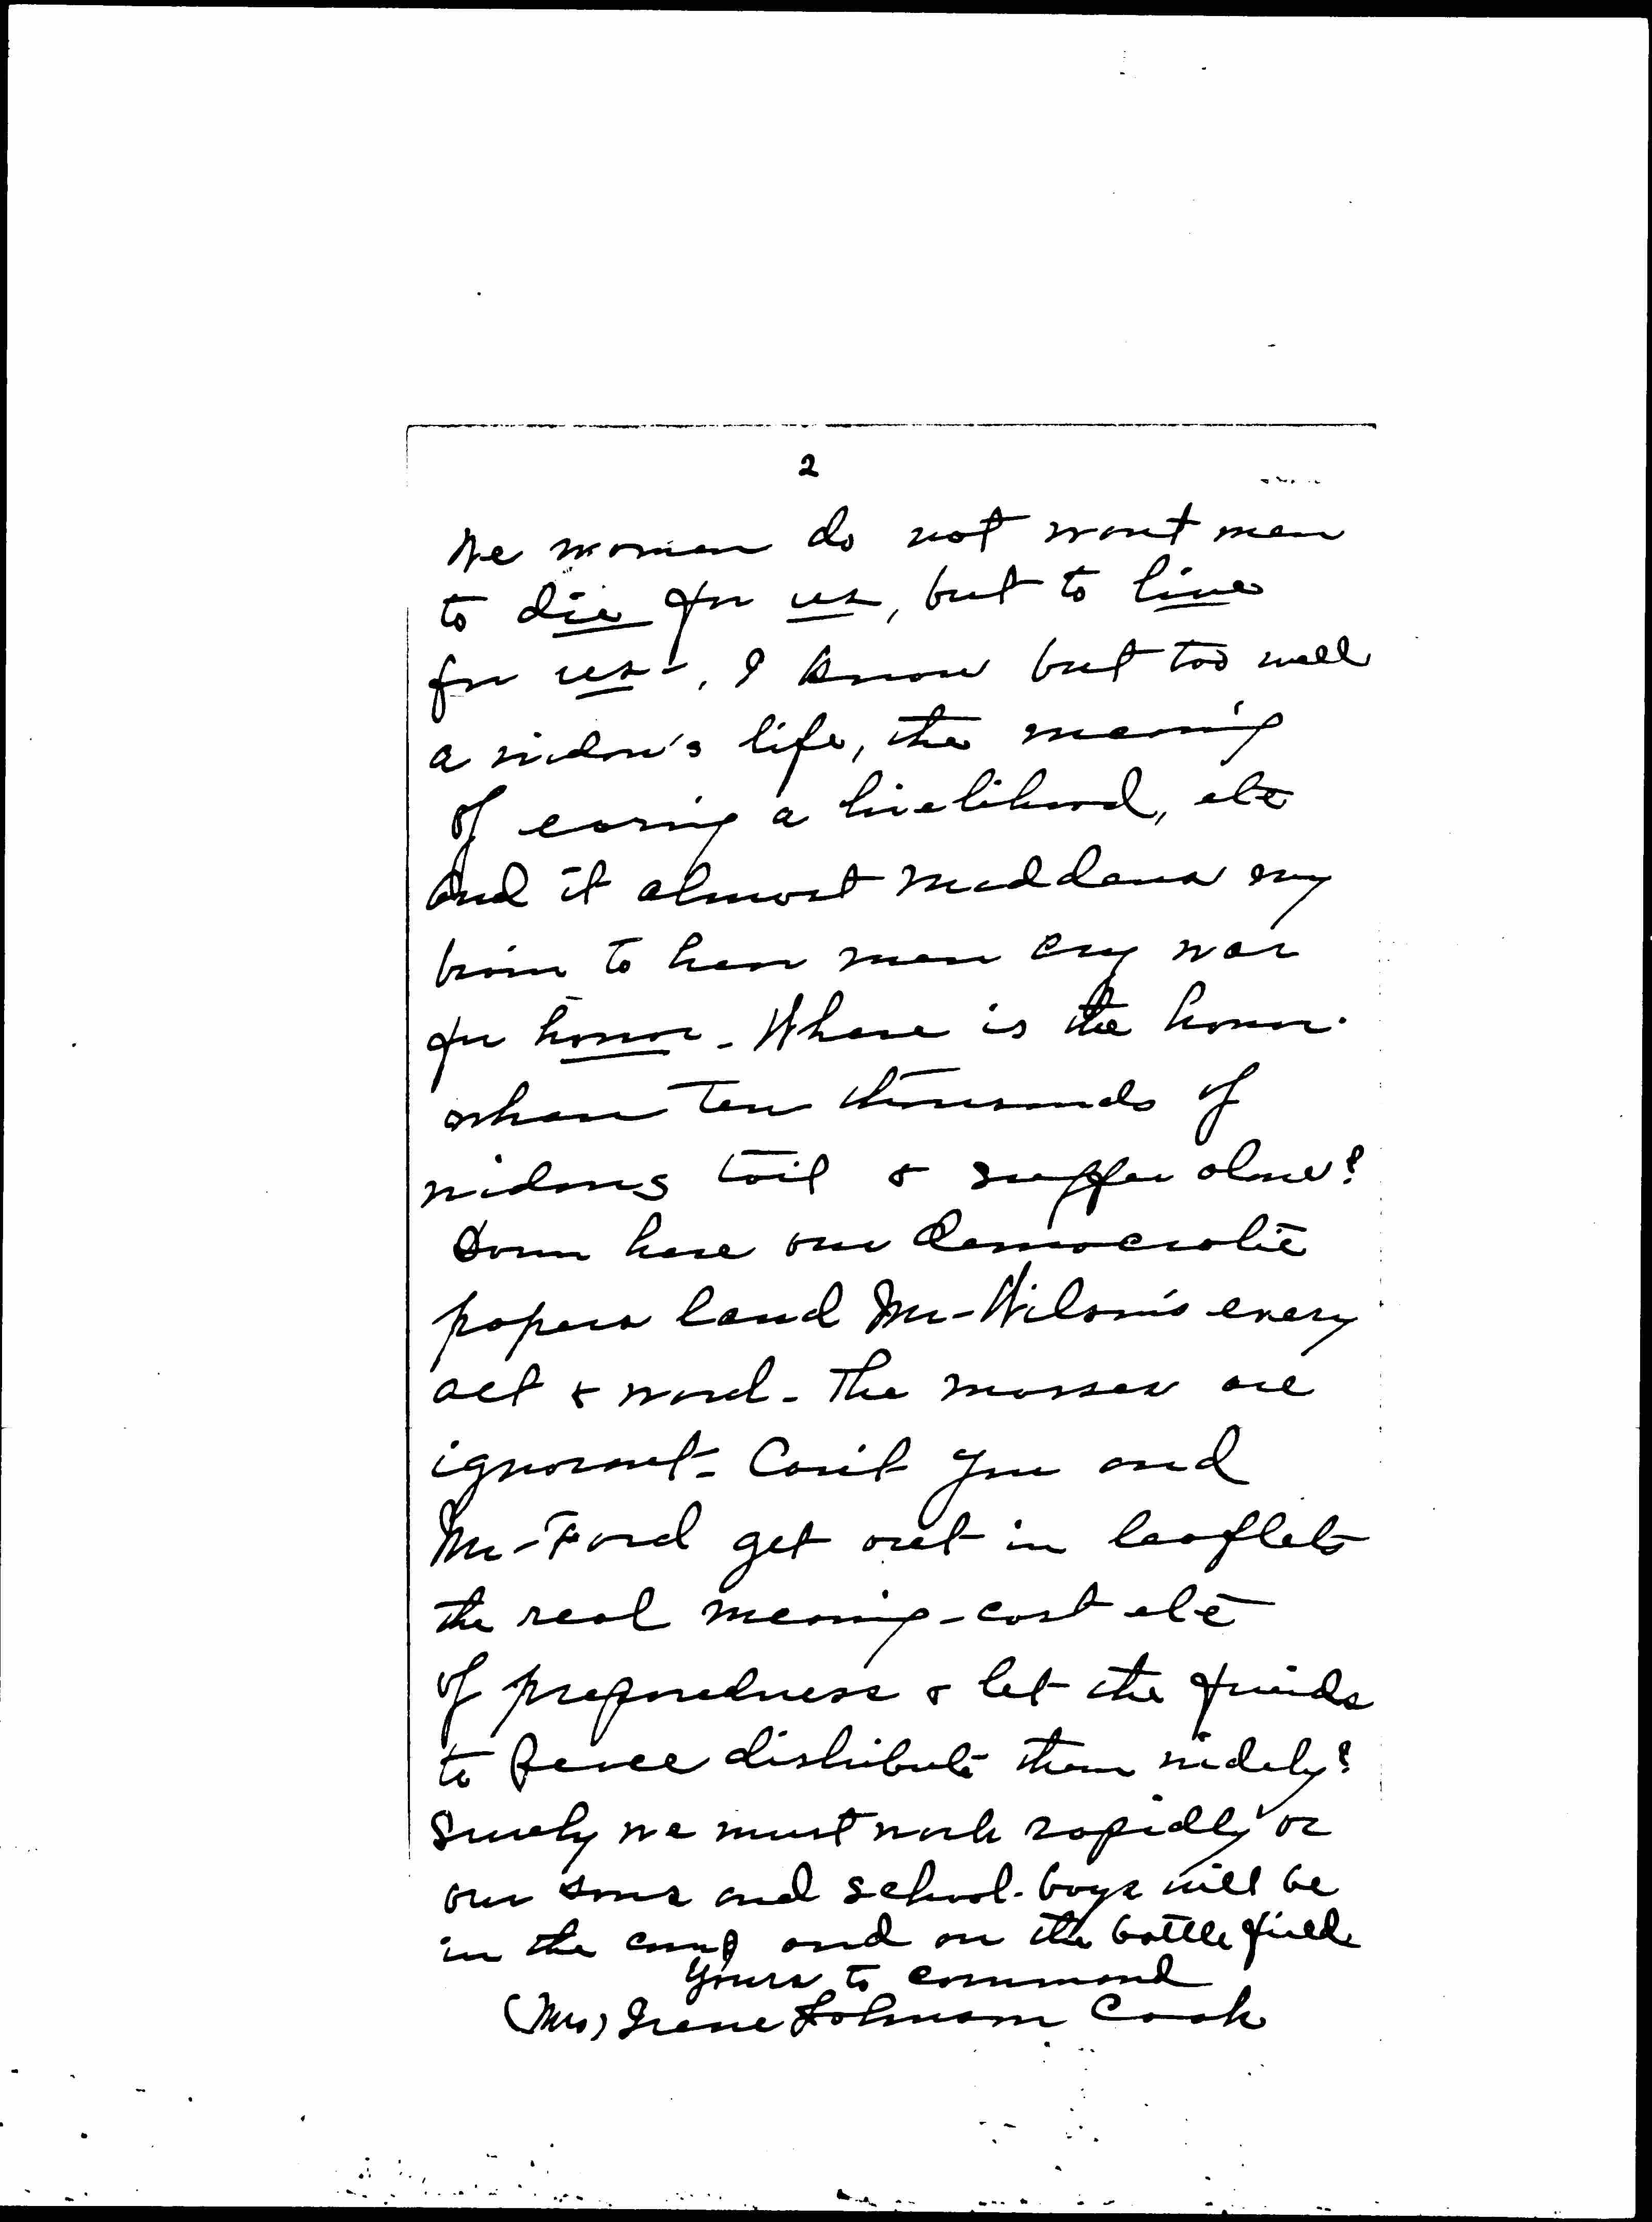 2
We women do not want men
to die for us, but to live
for us-, I know but too well
a widow's life, the meaning
of earning a livelihood, etc
And it almost maddens my
brain to hear men cry war
for honor - Where is the honor
when ten thousands of
widows toil & suffer alone?
Down here our democratic
papers laud Mr - Wilson's every
act & word - The masses are
ignorant - Can't you and
Mr - Ford get out in leaflets
the real meaning - cost etc
of preparedness & let the friends
to Peace distribute them widely?
Surely we must work rapidly or
our sons and school-boys will be
in the camp and on the battle field
Yours to command
(Mrs) Irene Johnson Cook